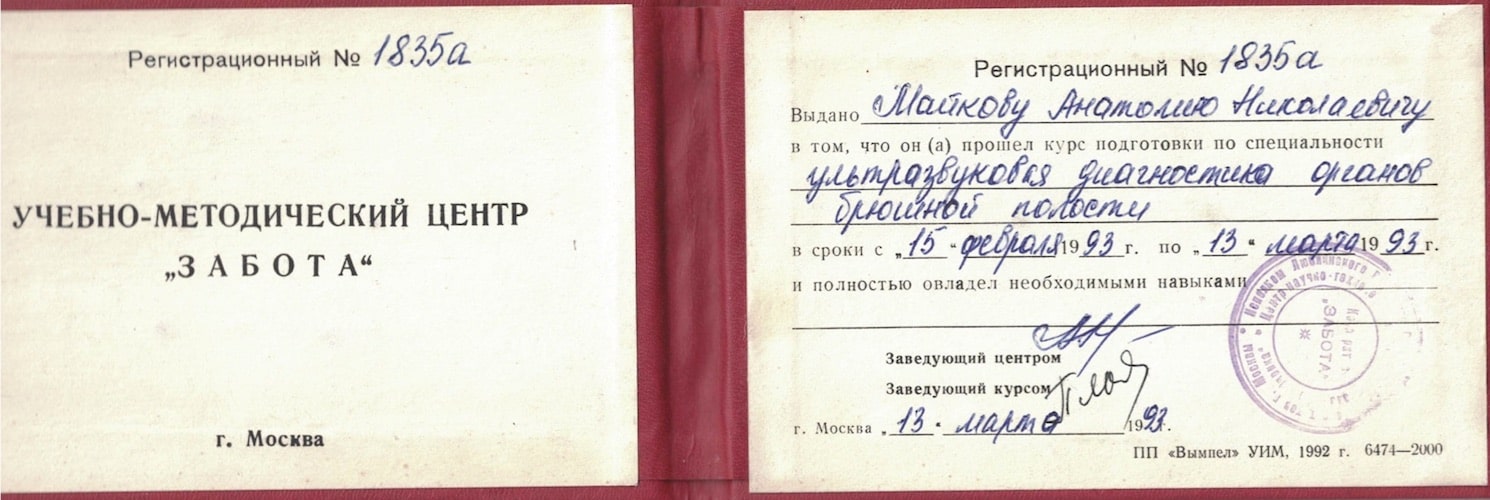 Регистрационный № 1835а
УЧЕБНО-МЕТОДИЧЕСКИЙ ЦЕНТР
„ЗАБОТА“
г. Москва
Регистрационный № 1835а
Выдано Майкову Анатолию Николаевичу
в том, что он (а) прошел курс подготовки по специальности
ультразвуковая диагностика органов
брюшной полости
в сроки с „15“ февраля 1993 г. по „13“ марта 1993 г.
и полностью овладел необходимыми навыками
Заведующий центром
Заведующий курсом
г. Москва „13“ марта 1993г.
ПП «Вымпел» УИМ, 1992 г. 6474—2000
„ЗАБОТА“